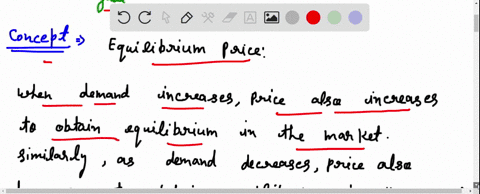 Concept ⇒ Equilibrium Price:
when demand increases, price also increases
to obtain equilibrium in the market.
similarly, as demand decreases, price also